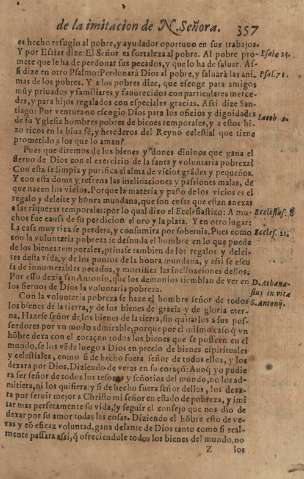 de la imitacion de N. Señora. 357
es hecho refugio al pobre, y ayudador oportuno en sus trabajos.
Y por Esaias dize: El Señor es fortaleza al pobre. Al pobre pro-
mete que le ha de perdonar sus pecados, y que lo ha de saluar. As-
si dize en otro Psalmo: Perdonará Dios al pobre, y saluará las ani-
mas de los pobres. Y a los pobres dize, que escoge para amigos
muy priuados y familiares y fauorecidos con particulares merce-
des, y para hijos regalados con especiales gracias. Assi dize San-
tiago: Por ventura no escogio Dios para los oficios y dignidades
de su Yglesia hombres pobres de bienes temporales, y a estos hi-
zo ricos en la biua fè, y herederos del Reyno celestial que tiene
prometido a los que lo aman?
Pues que diremos de los bienes y dones diuinos que gana el
sieruo de Dios con el exercicio de la santa y voluntaria pobreza?
Con esta se limpia y purifica el alma de vicios grādes y pequeños.
Y con esta doma y refrena las inclinaciones y passiones malas, de
que nacen los vicios. Porque la materia y pasto de los vicios es el
regalo y deleite y hōra mundana, que son cosas que estan anexas
a las riquezas temporales: por lo qual dixo el Ecclesiastico: A mu-
chos fue causa de su perdicion el oro y la plata. Y en otro lugar:
La casa muy rica se perdera, y consumira por soberuia. Pues como
con la voluntaria pobreza se desnuda el hombre en lo que puede
de los bienes temporales, priuase tambien de los regalos y deley-
tes desta vida, y de los puntos de la honra mundana, y assi se esca
pa de innumerables pecados, y mortifica las inclinaciones dellos.
Por esto dezia san Antonio, q̄ los demonios tiemblan de ver en
los sieruos de Dios la voluntaria pobreza.
Con la voluntaria pobreza se haze el hombre señor de todos
los bienes de la tierra, y de los bienes de gracia y de gloria eter-
na. Hazese señor de los bienes de la tierra,
perdores por vn modo admirable, porque por el mismo caso q̄ vn
hōbre dexa con el coraçon todos los bienes que se posseen en el
mundo, se los vēde luego a Dios en precio de bienes espirituales
y celestiales, como si de hecho fuera señor de todos ellos, y los
dexara por Dios. Diziendo de veras en su coraçō: Aunq̄ yo pudie
ra ser señor de todos los tesoros y señorios del mundo, no los ad-
mitiera, ni los quisiera, y si de hecho fuera señor dellos, los dexa-
ra por seruir mejor a Christo mi señor en estado de pobreza, y imi
tar mas perfetamente su vida, y seguir el consejo que nos dio de
dexar por su amor todas las cosas. Diziendo el hōbre esto de ve-
ras y cō eficaz voluntad, gana delante de Dios tanto como si real-
mente passara assi, q̄ ofreciendole todos los bienes del mundo, no
Z los
Psal. 71.
Iacob. 2.
Eccles. 21.
D. Athana-
sius in vita
S. Antonij.